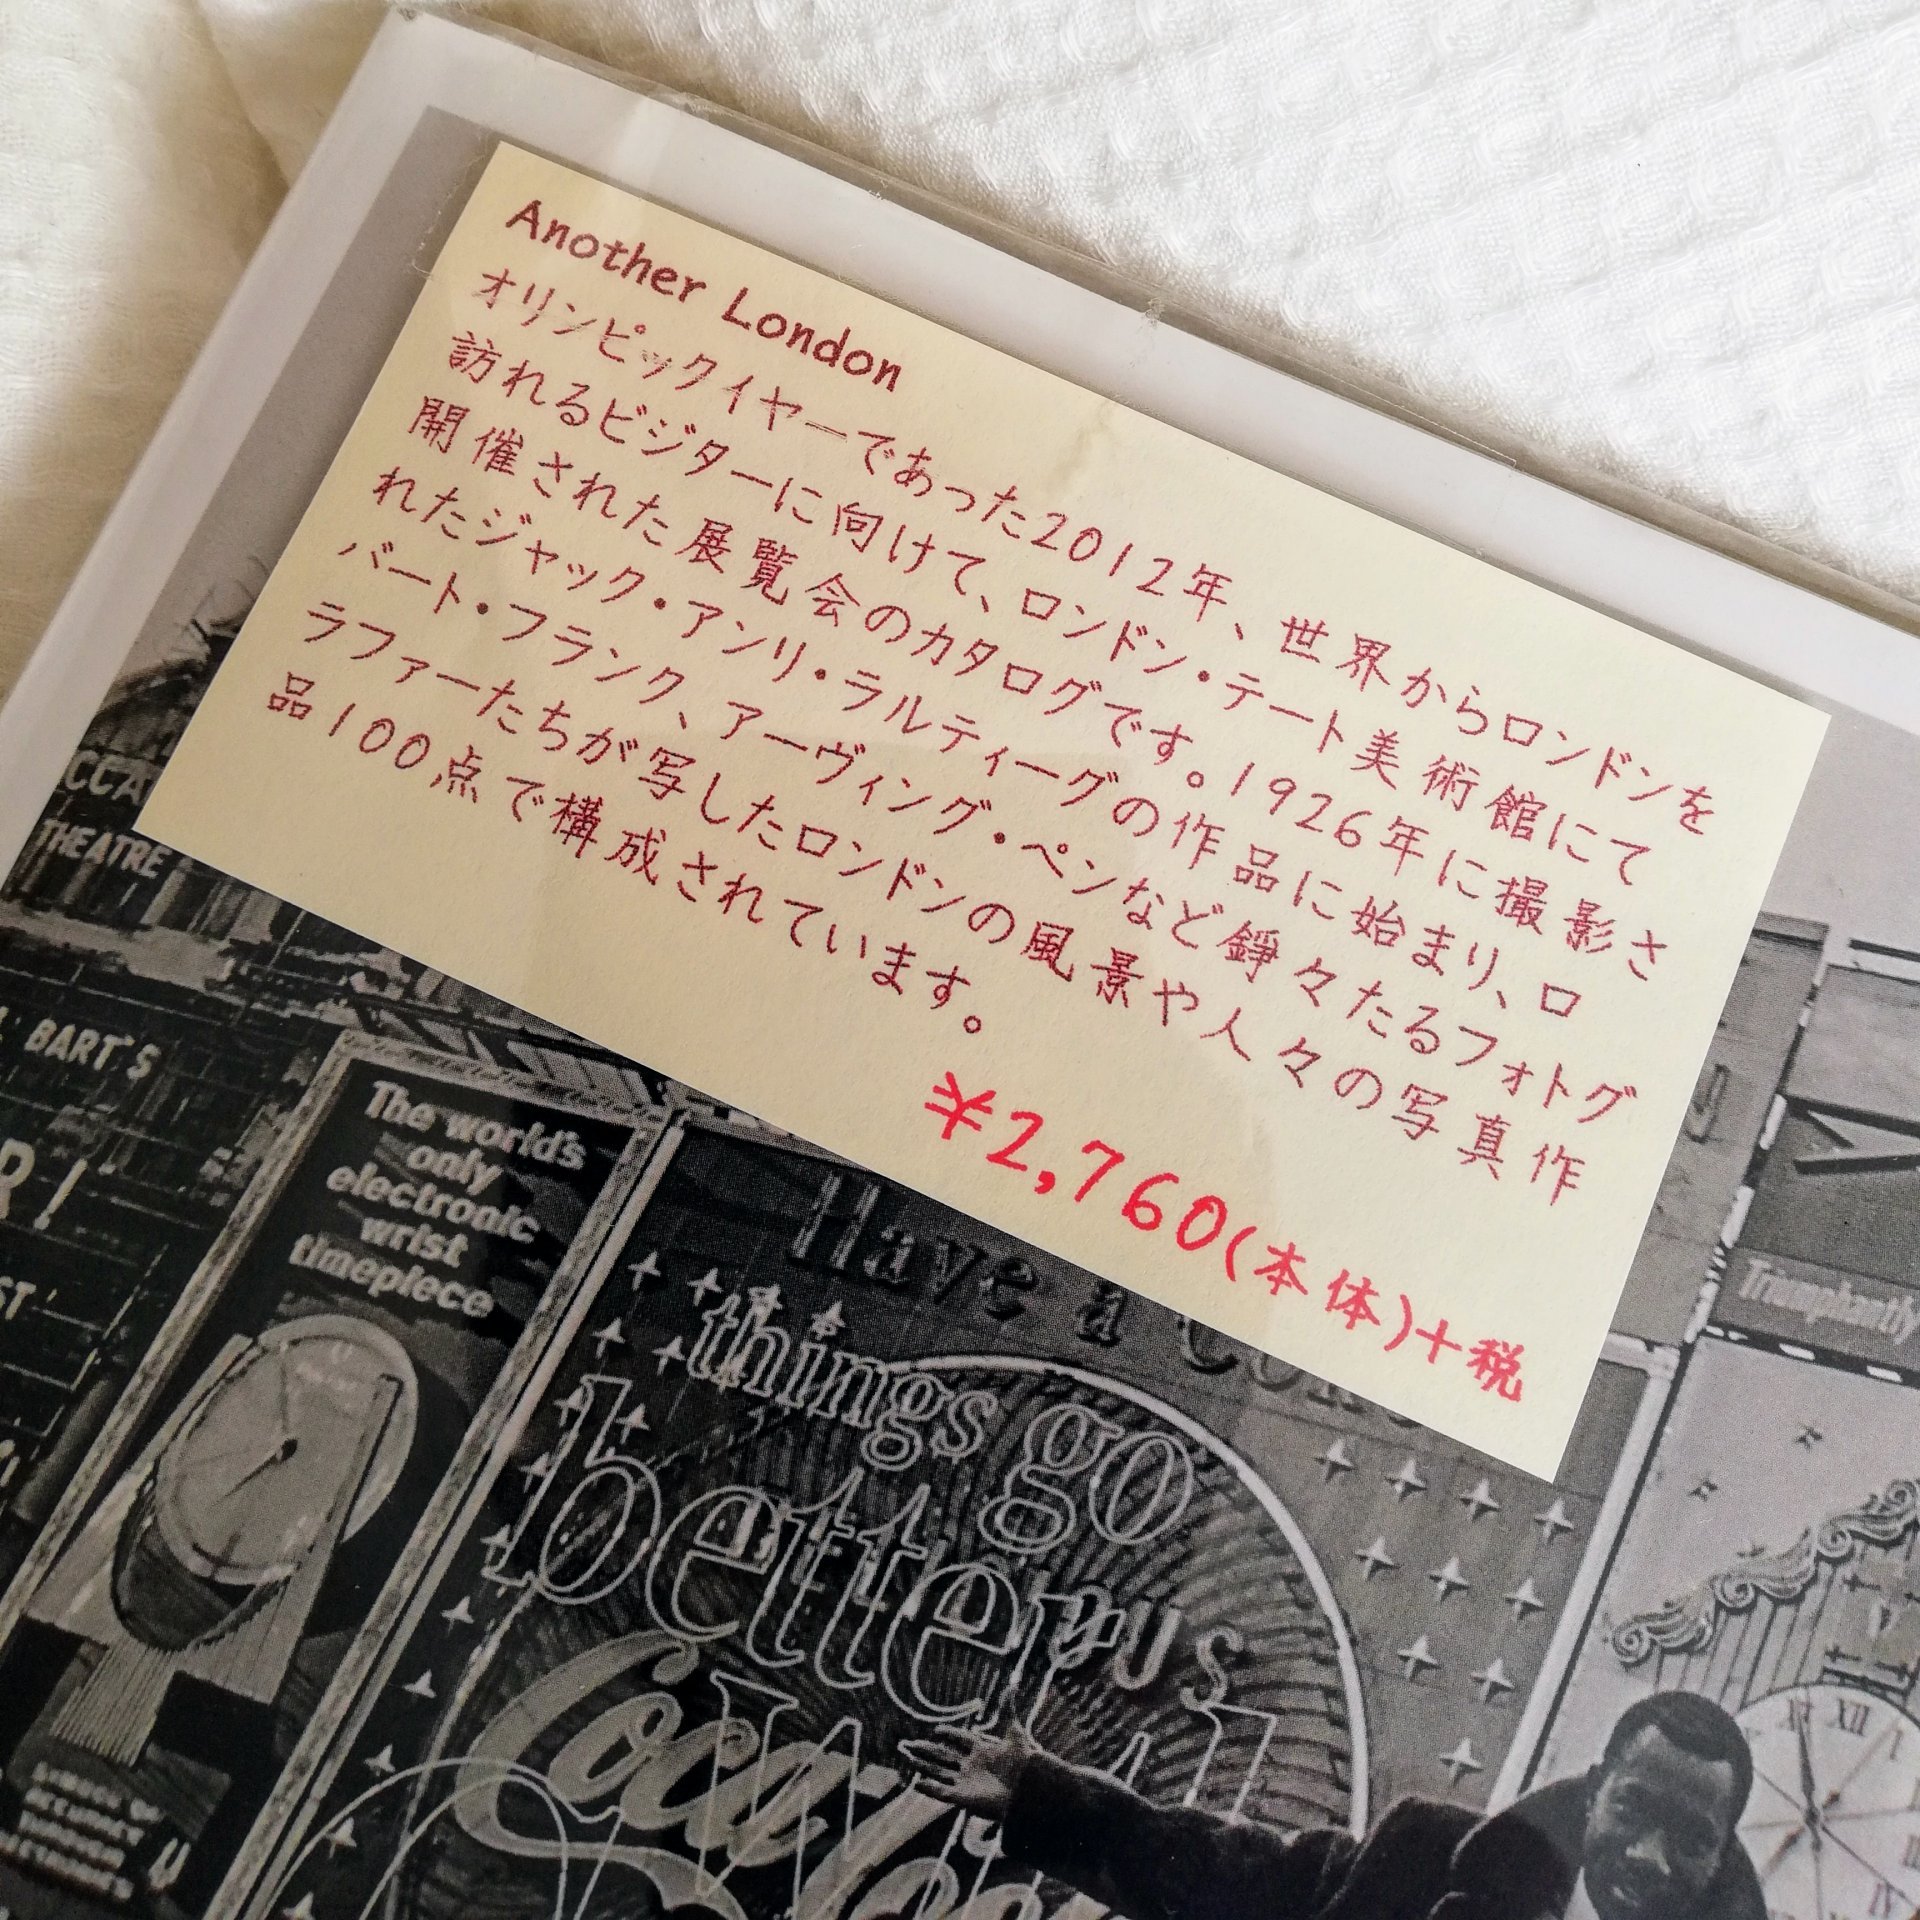 Another London
オリンピックイヤーであった2012年、世界からロンドンを
訪れるビジターに向けて、ロンドン・テート美術館にて
開催された展覧会のカタログです。1926年に撮影さ
れたジャック・アンリ・ラルティーグの作品に始まり、ロ
バート・フランク、アーヴィング・ペンなど錚々たるフォトグ
ラファーたちが写したロンドンの風景や人々の写真作
品100点で構成されています。
¥2,760(本体)+税
THEATRE
BART'S
The world's
only
electronic
wrist
timepiece
Have a
things go
better
Coca
Triumphantly
XII